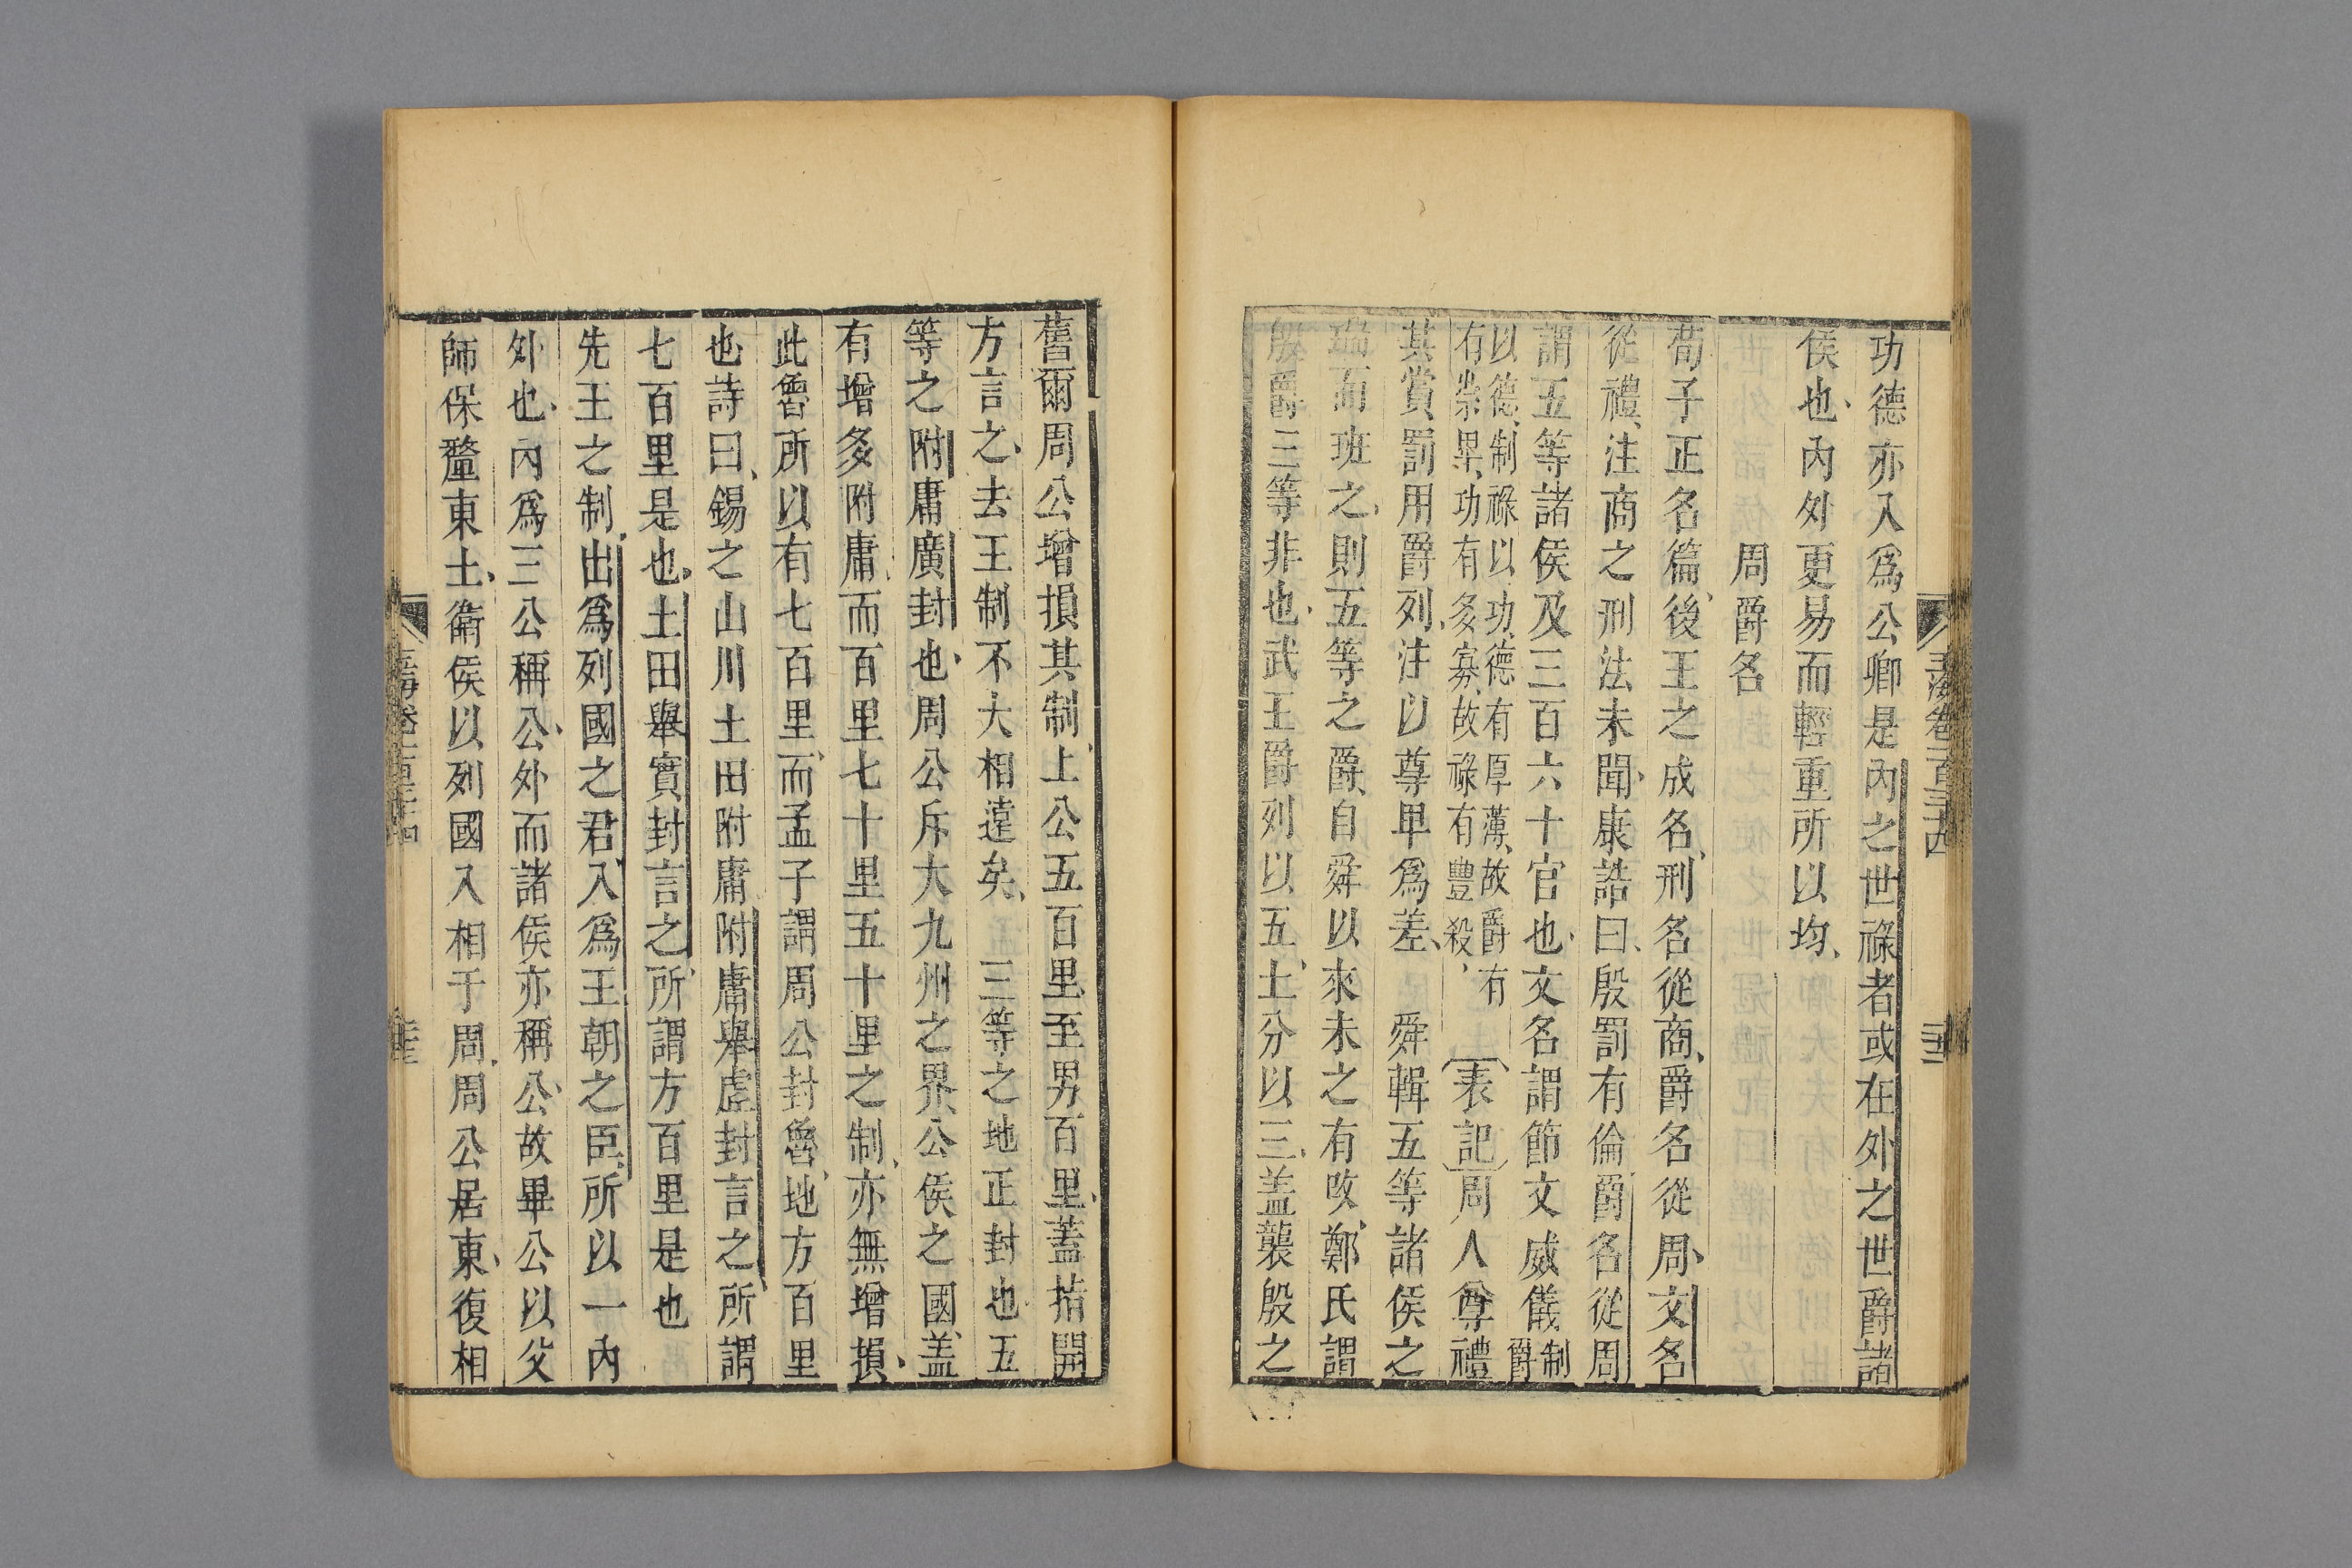 玉海卷一百三十四
功德亦入爲公卿是內之世祿者或在外之世爵諸
侯也內外更易而輕重所以均
周爵名
荀子正名篇後王之成名刑名從商爵名從周文名
從禮注商之刑法未聞康誥曰殷罰有倫爵名從周
謂五等諸侯及三百六十官也文名謂節文威儀制爵
以德制祿以功德有厚薄故爵有
有崇畢功有多寡故祿有豐殺
表記周人尊禮
其賞罰用爵列注以尊畢爲差 舜輯五等諸侯之
瑞而班之則五等之爵自舜以來未之有攺鄭氏謂
殷爵三等非也武王爵列以五土分以三盖襲殷之
舊爾周公增損其制上公五百里至男百里蓋措開
方言之去王制不大相遠矣 三等之地正封也五
等之附庸廣封也周公斥大九州之界公侯之國盖
有增多附庸而百里七十里五十里之制亦無增損
此魯所以有七百里而孟子謂周公封魯地方百里
也詩曰錫之山川土田附庸附庸舉虛封言之所謂
七百里是也土田舉實封言之所謂方百里是也
先王之制出爲列國之君入爲王朝之臣所以一內
外也內爲三公稱公外而諸侯亦稱公故畢公以父
師保釐東土衛侯以列國入相于周周公居東復相
玉海卷一百三十四